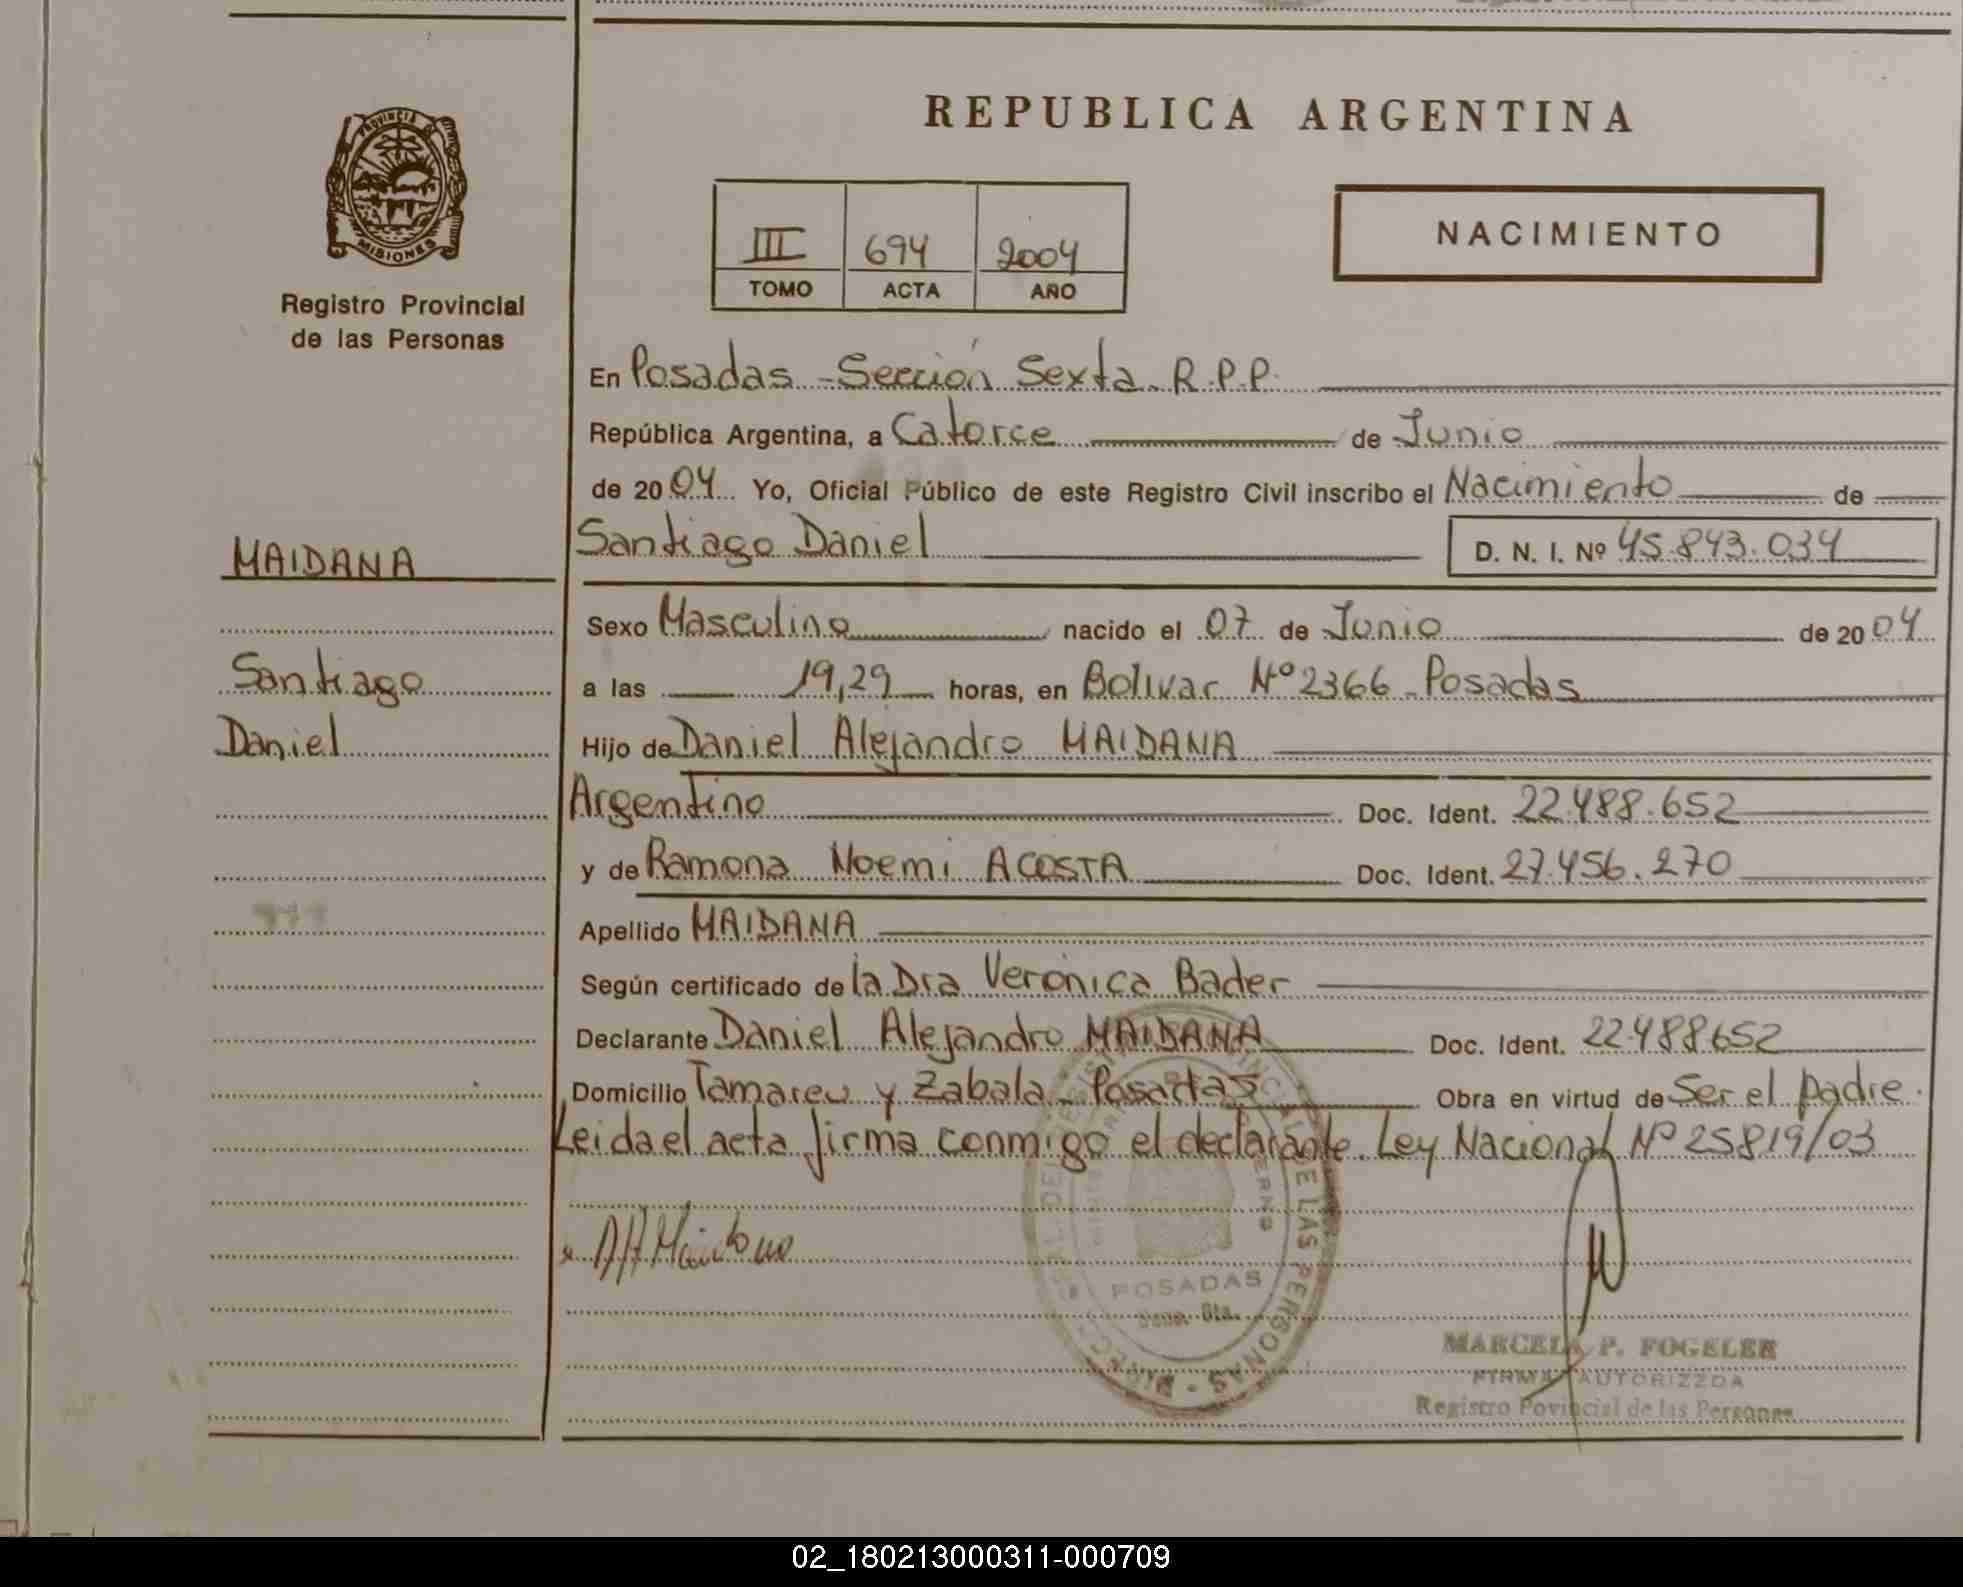 REPUBLICA ARGENTINA
PROVINCIA DE
MISIONES
Registro Provincial
de las Personas
III 694 2004
TOMO ACTA AÑO
NACIMIENTO
En Posadas - Sección Sexta R.P.P.
República Argentina, a Catorce de Junio
de 2004 Yo, Oficial Público de este Registro Civil inscribo el Nacimiento de
Santiago Daniel D. N. I. Nº 45.843.034
MAIDANA
Santiago
Daniel
Sexo Masculino nacido el 07 de Junio de 2004
a las 19,29 horas, en Bolivar Nº 2366 - Posadas
Hijo de Daniel Alejandro MAIDANA
Argentino Doc. Ident. 22.488.652
y de Ramona Noemi ACOSTA Doc. Ident. 27.456.270
Apellido MAIDANA
Según certificado de la Dra Verónica Bader
Declarante Daniel Alejandro MAIDANA Doc. Ident. 22.488652
Domicilio Tamareu y Zabala - Posadas Obra en virtud de Ser el padre.
Leida el acta firma conmigo el declarante. Ley Nacional Nº 25819/03
POSADAS
MARCELA P. FOGELER
FIRMA AUTORIZZDA
Registro Povincial de las Personas
02_180213000311-000709